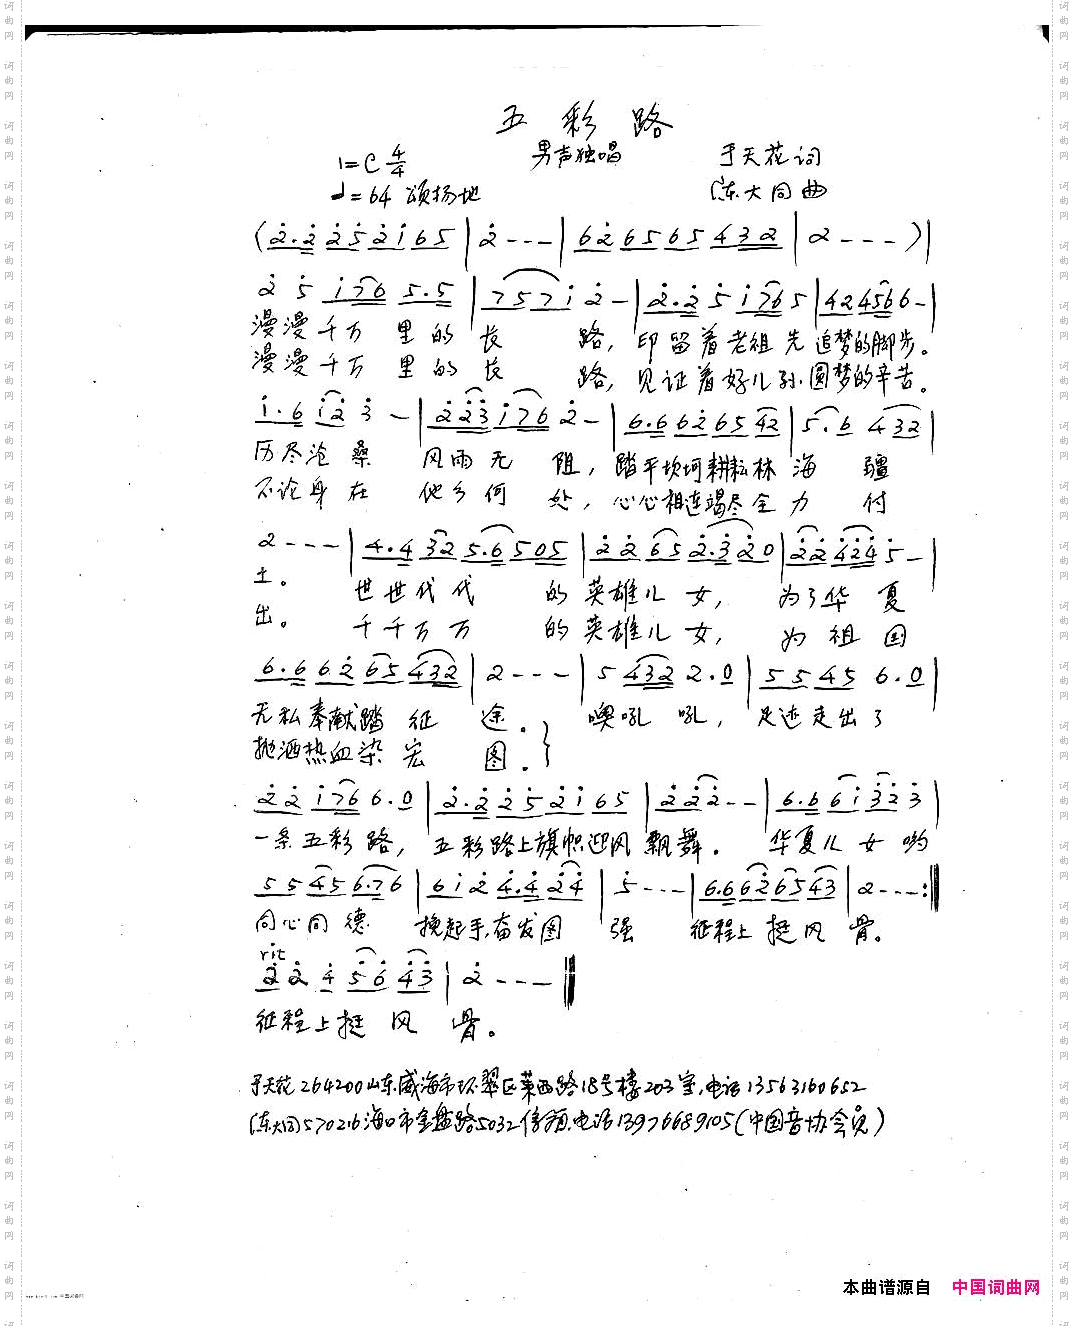 五彩路
男声独唱
1=C 4/4
于天花词
♩=64 颂扬地
陈大同曲
(2̇.2̇ 2̇5̇ 2̇1̇ 65 | 2̇--- | 62̇ 65 65 432 | 2---)|
2̇ 5̇ 1̇76 5.5 | 7571̇ 2̇- | 2̇.2̇ 5̇ 1̇76 5 | 424566-|
漫漫千万里的长路，印留着老祖先追梦的脚步。
漫漫千万里的长路，见证着好儿孙圆梦的辛苦。
1̇.6 1̇2̇ 3̇ - | 2̇2̇3̇ 1̇76 2̇- | 6.6 62̇ 65 42 | 5.6 432|
历尽沧桑风雨无阻，踏平坎坷耕耘林海疆
不论身在他乡何处，心心相连竭尽全力付
2--- | 4.4 32 5.6 505 | 2̇2̇ 65 2̇.3̇ 2̇0 | 2̇2̇ 4̇2̇4̇ 5̇-|
土。世世代代的英雄儿女，为了华夏
出。千千万万的英雄儿女，为祖国
6.6 62̇ 65 432 | 2--- | 5 432 2.0 | 55 45 6.0|
无私奉献踏征途。噢吼吼，足迹走出了
抛洒热血染宏图。
2̇2̇ 1̇76 6.0 | 2̇.2̇ 2̇5̇ 2̇1̇ 65 | 2̇2̇2̇-- | 6.6 61̇ 3̇2̇ 3̇|
一条五彩路，五彩路上旗帜迎风飘舞。华夏儿女哟
55 45 6.76 | 61̇2̇ 4̇.4̇ 2̇4̇ | 5̇--- | 6.6 62̇ 65 43 | 2---:‖
同心同德挽起手，奋发图强征程上挺风骨。
rit
2̇ 2̇ 4̇ 5̇6̇ 4̇3̇ | 2̇---‖
征程上挺风骨。
于天花 264200山东威海市环翠区莱西路18号楼203室，电话13563160652
陈大同570216海口市金盘路5032信箱，电话13976689105(中国音协会员)
本曲谱源自 中国词曲网